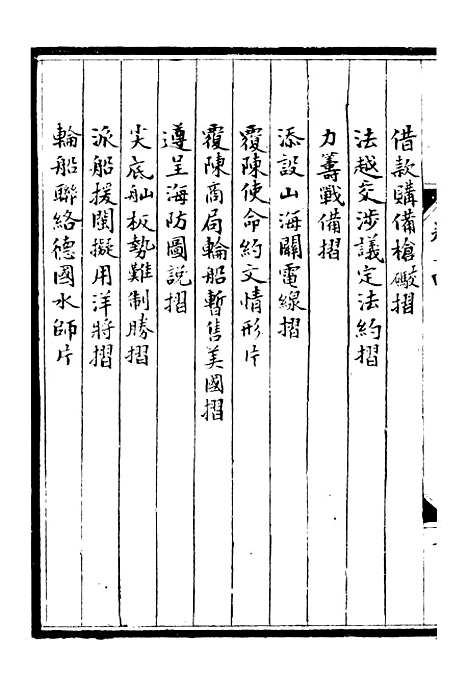 借款購備槍礮摺
法越交涉議定法約摺
力籌戰備摺
添設山海關電線摺
覆陳使命約文情形片
覆陳商局輪船暫售美國摺
遵呈海防圖說摺
尖底舢板勢難制勝摺
派船援閩擬用洋將摺
輪船聯絡德國水師片